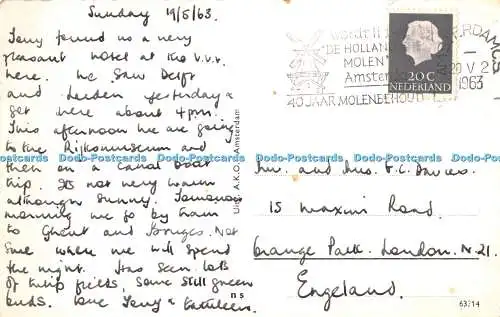 Sunday 19/5/63.
Tony found us a very
pleasant hotel at the V.V.V.
here. We saw Delft
and Leiden yesterday &
got here about 4pm.
This afternoon we are going
to the Rijksmuseum and
then on a Canal boat
trip. It's not very warm
although sunny. Tomorrow
morning we go by tram
to Ghent and Bruges. Not
sure where we will spend
the night. Has seen lots
of tulip fields, some still green
buds. Love Tony & Kathleen.
DE HOLLAN
MOLEN
Amster
40 JAAR MOLENBEHOUD
RDAM C.S
20 V 2
1963
20 C
NEDERLAND
A.K.O. Amsterdam
Mr. and Mrs. F.C. Davies.
15 Maxim Road.
Grange Park. London. N.21.
Engeland.
ns
63714
Dodo-Postcards Dodo-Postcards Dodo-Postcards Dodo-Postcards Dodo-Postcards